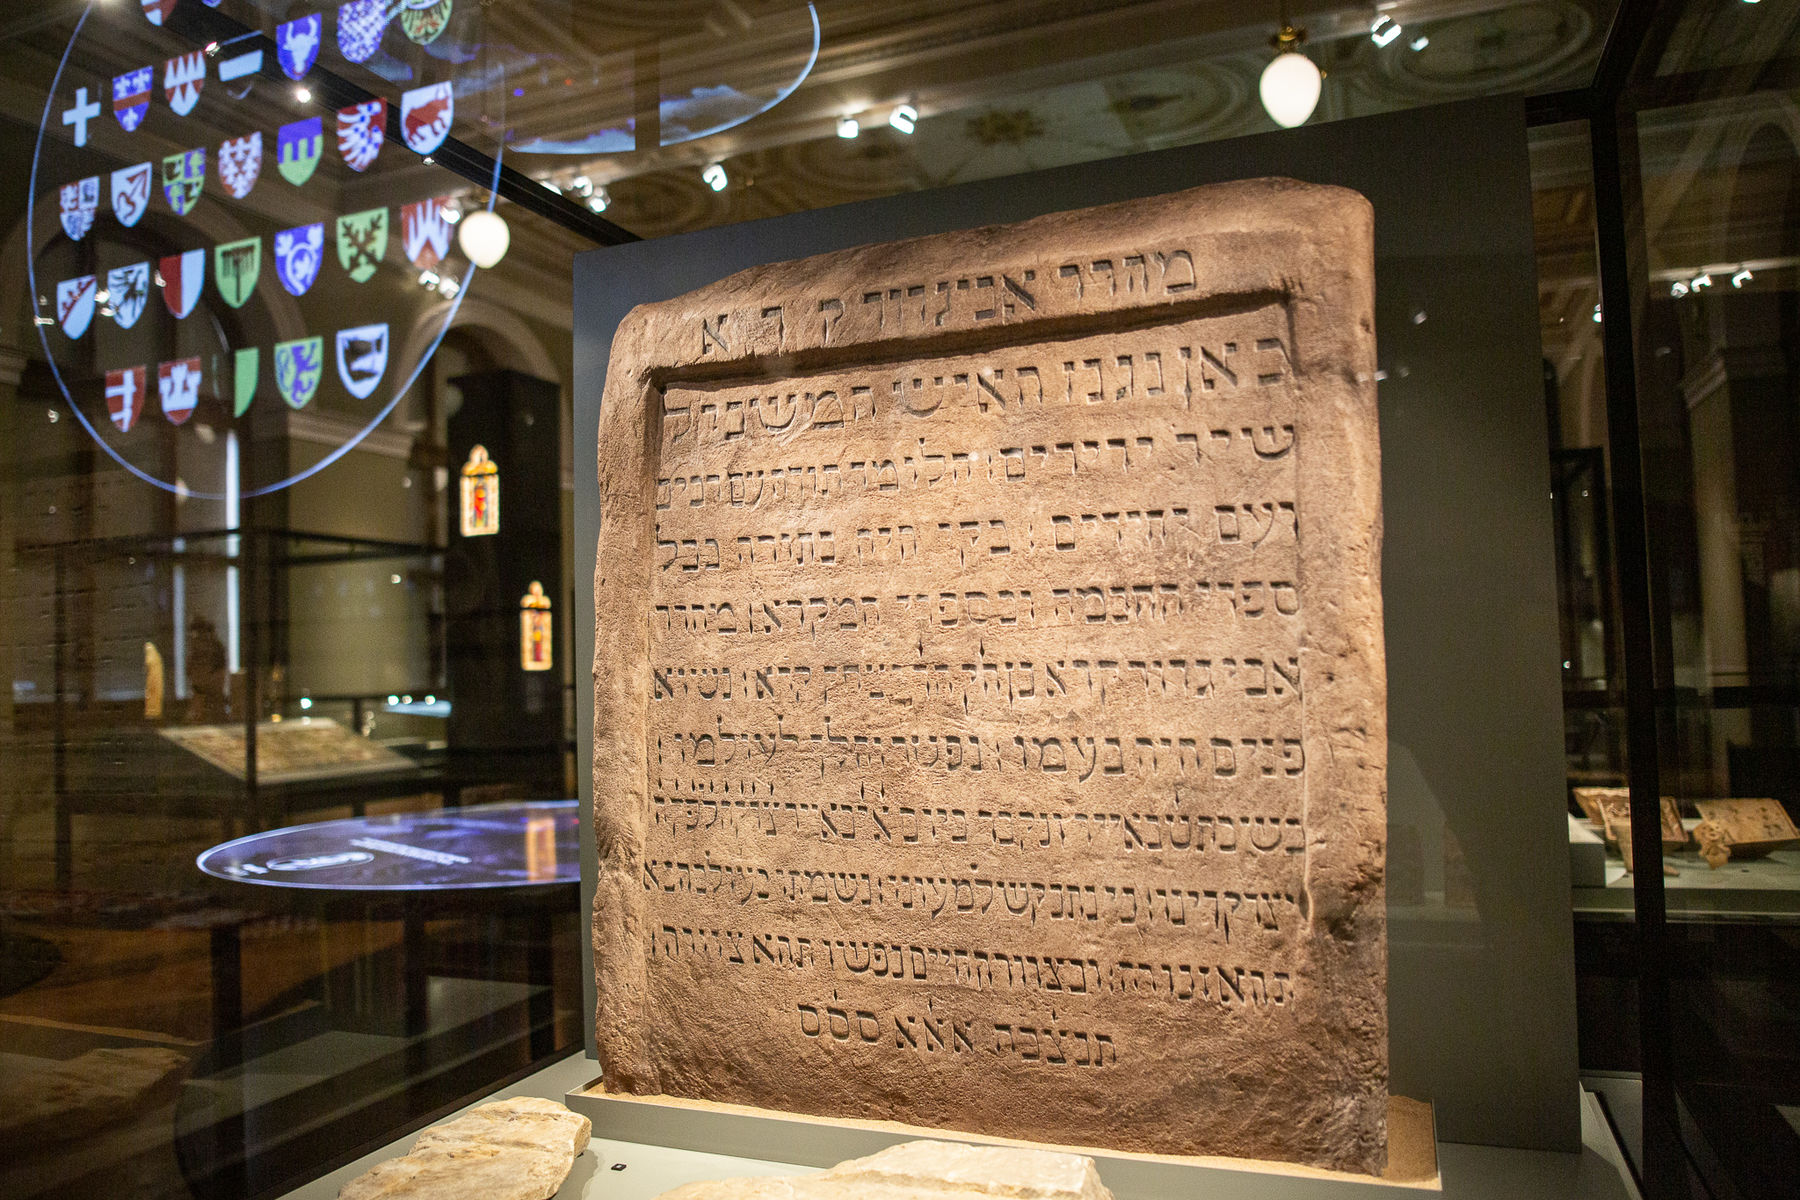 מהרר אביגדור קרא
כאן נגנז האיש המשכיל
שיר ידידים : הלומד תורה עם רבים
ועם יחידים : בקי היה בתורה בכל
ספרי החכמה ובספרי המקרא : מהרר
אביגדור קרא בן יצחק קרא : נשוא
פנים היה בעמו : נפטר והלך לעולמו :
בשבת ט באייר ונקבר ביום א באייר לפק
יצדק דינו : נשמתו בעולם הבא
תהא זכורה : ובצרור החיים נפשו תהא צרורה :
תנצבה אאא סלס